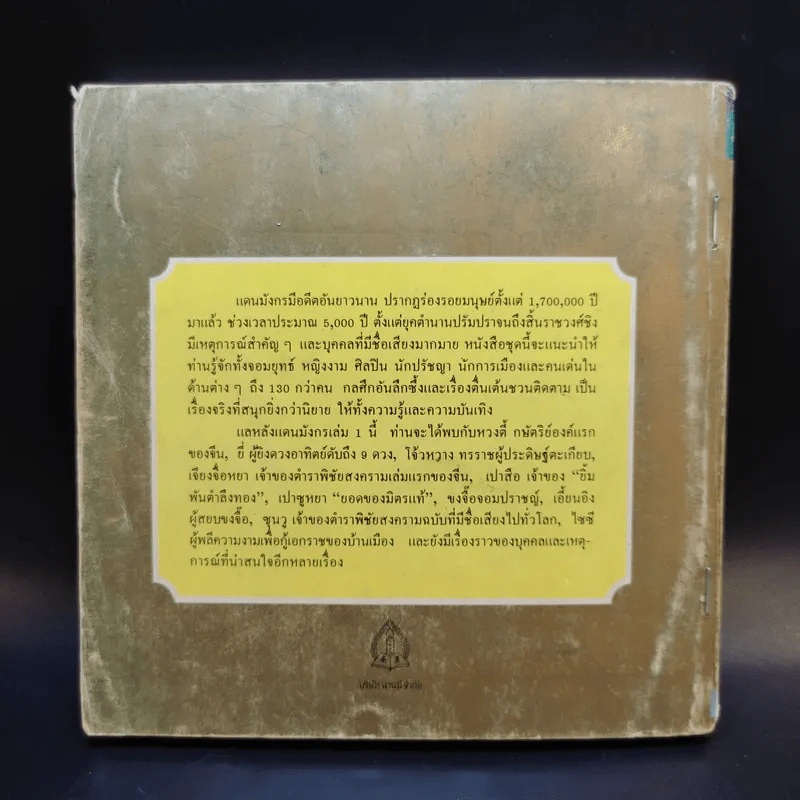 แดนมังกรมีอดีตอันยาวนาน ปรากฏร่องรอยมนุษย์ตั้งแต่ 1,700,000 ปี
มาแล้ว ช่วงเวลาประมาณ 5,000 ปี ตั้งแต่ยุคตำนานปรัมปราจนถึงสิ้นราชวงศ์ชิง
มีเหตุการณ์สำคัญ ๆ และบุคคลที่มีชื่อเสียงมากมาย หนังสือชุดนี้จะแนะนำให้
ท่านรู้จักทั้งจอมยุทธ์ หญิงงาม ศิลปิน นักปรัชญา นักการเมืองและคนเด่นใน
ด้านต่าง ๆ ถึง 130 กว่าคน กลศึกอันลึกซึ้งและเรื่องตื่นเต้นชวนติดตาม เป็น
เรื่องจริงที่สนุกยิ่งกว่านิยาย ให้ทั้งความรู้และความบันเทิง
แลหลังแดนมังกรเล่ม 1 นี้ ท่านจะได้พบกับหวงตี้ กษัตริย์องค์แรก
ของจีน, ยี่ ผู้ยิงดวงอาทิตย์ดับถึง 9 ดวง, โจ้วหวาง ทรราชผู้ประดิษฐ์ตะเกียบ,
เจียงจื่อหยา เจ้าของตำราพิชัยสงครามเล่มแรกของจีน, เปาสือ เจ้าของ "ยิ้ม
พันตำลึงทอง", เปาซูหยา "ยอดของมิตรแท้", ขงจื๊อจอมปราชญ์, เอี้ยนอิง
ผู้สยบขงจื๊อ, ซุนวู เจ้าของตำราพิชัยสงครามฉบับที่มีชื่อเสียงไปทั่วโลก, ไซซี
ผู้พลีความงามเพื่อกู้เอกราชของบ้านเมือง และยังมีเรื่องราวของบุคคลและเหตุ-
การณ์ที่น่าสนใจอีกหลายเรื่อง
บริษัท นานมี จำกัด